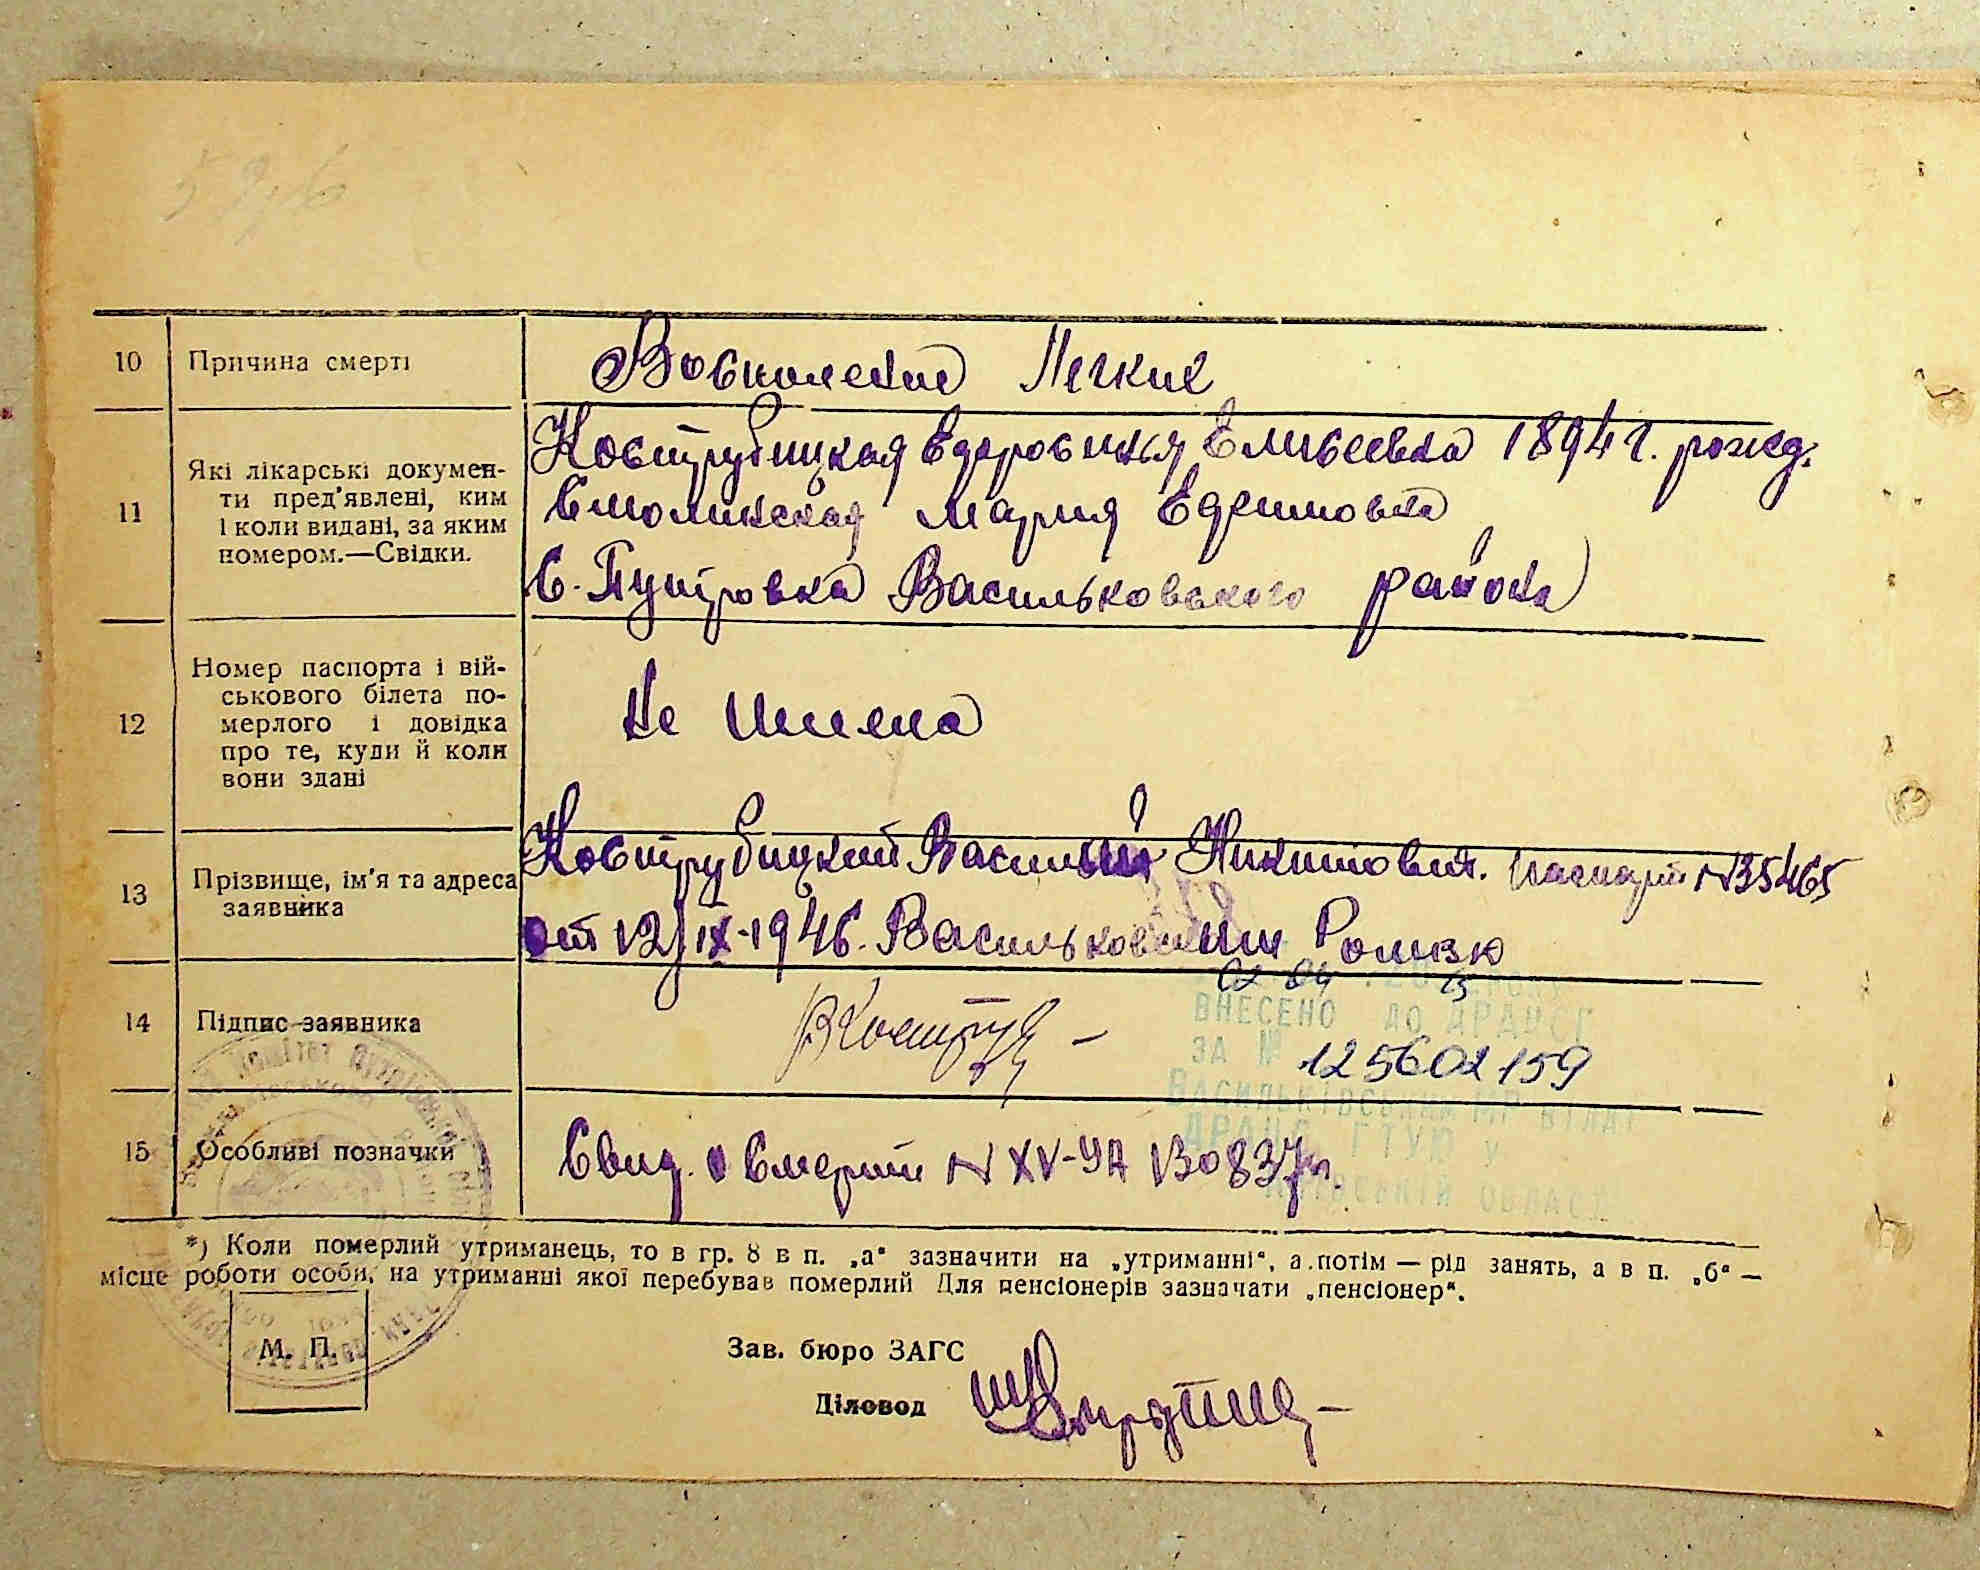 10 Причина смерті Воспаление Легких
11 Які лікарські докумен-
ти пред'явлені, ким
і коли видані, за яким
номером.—Свідки.
Кострубицкая Ефросиния Елисеевна 1894 г. рожд.
Смолинская Мария Ефимовна
С. Путровка Васильковского района
12 Номер паспорта і вій-
ськового білета по-
мерлого і довідка
про те, куди й коли
вони здані
Не имела
13 Прізвище, ім'я та адреса
заявника
Кострубицкий Василий Никитович. паспорт N 35465
от 12/IX-1946. Васильковским Ромзю
14 Підпис заявника
02 04 . 20 15 року
ВНЕСЕНО ДО ДРАЦСГ
ЗА № 125602159
ВАСИЛЬКІВСЬКИМ МР ВІДДІ
ДРАЦС ГТУЮ У
КИЇВСЬКІЙ ОБЛАСТ
15 Особливі позначки Свид. о Смерти N XV-УА 130837
*) Коли померлий утриманець, то в гр. 8 в п. „а“ зазначити на „утриманні“, а потім — рід занять, а в п. „б“ —
місце роботи особи, на утриманні якої перебував померлий Для пенсіонерів зазначати „пенсіонер“.
М. П.
Зав. бюро ЗАГС
Діловод